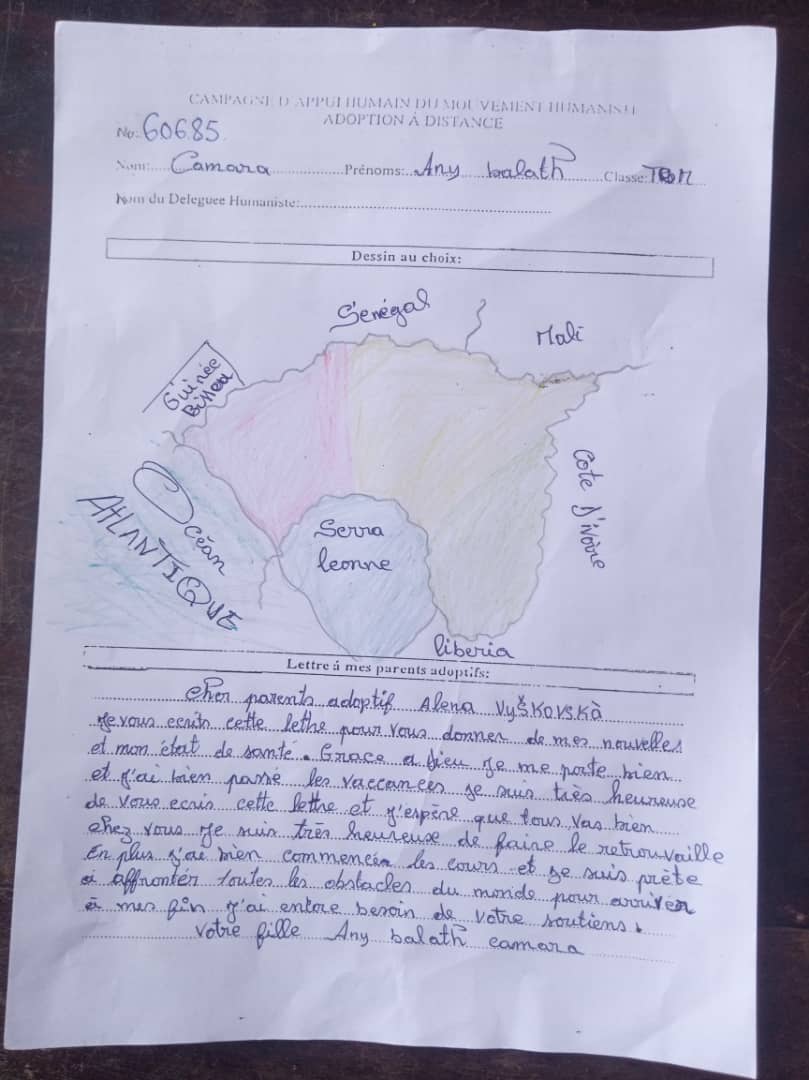 CAMPAGNE D'APPUI HUMAIN DU MOUVEMENT HUMANISTE
ADOPTION Á DISTANCE
No: 60685
Nom: Camara Prénoms: Any balath Classe:
Nom du Deleguee Humaniste:
Dessin au choix:
Sénégal
Mali
Guinée
Bissea
Cote d'ivoire
Océan
ATLANTIQUE
Serra
leonne
liberia
Lettre á mes parents adoptifs:
cher parents adoptif Alena VyŠKovsKà
Je vous ecrits cette lettre pour vous donner de mes nouvelles
et mon état de santé. Grace a Dieu je me porte bien
et j'ai bien passé les vaccances je suis très heureuse
de vous ecris cette lettre et j'espère que tous vas bien
chez vous je suis très heureuse de faire le retrouvaille
En plus j'ai bien commencer les cours et je suis prète
à affronter toutes les obstacles du monde pour arriver
à mes fin j'ai entore besoin de votre soutiens.
votre fille Any balath camara